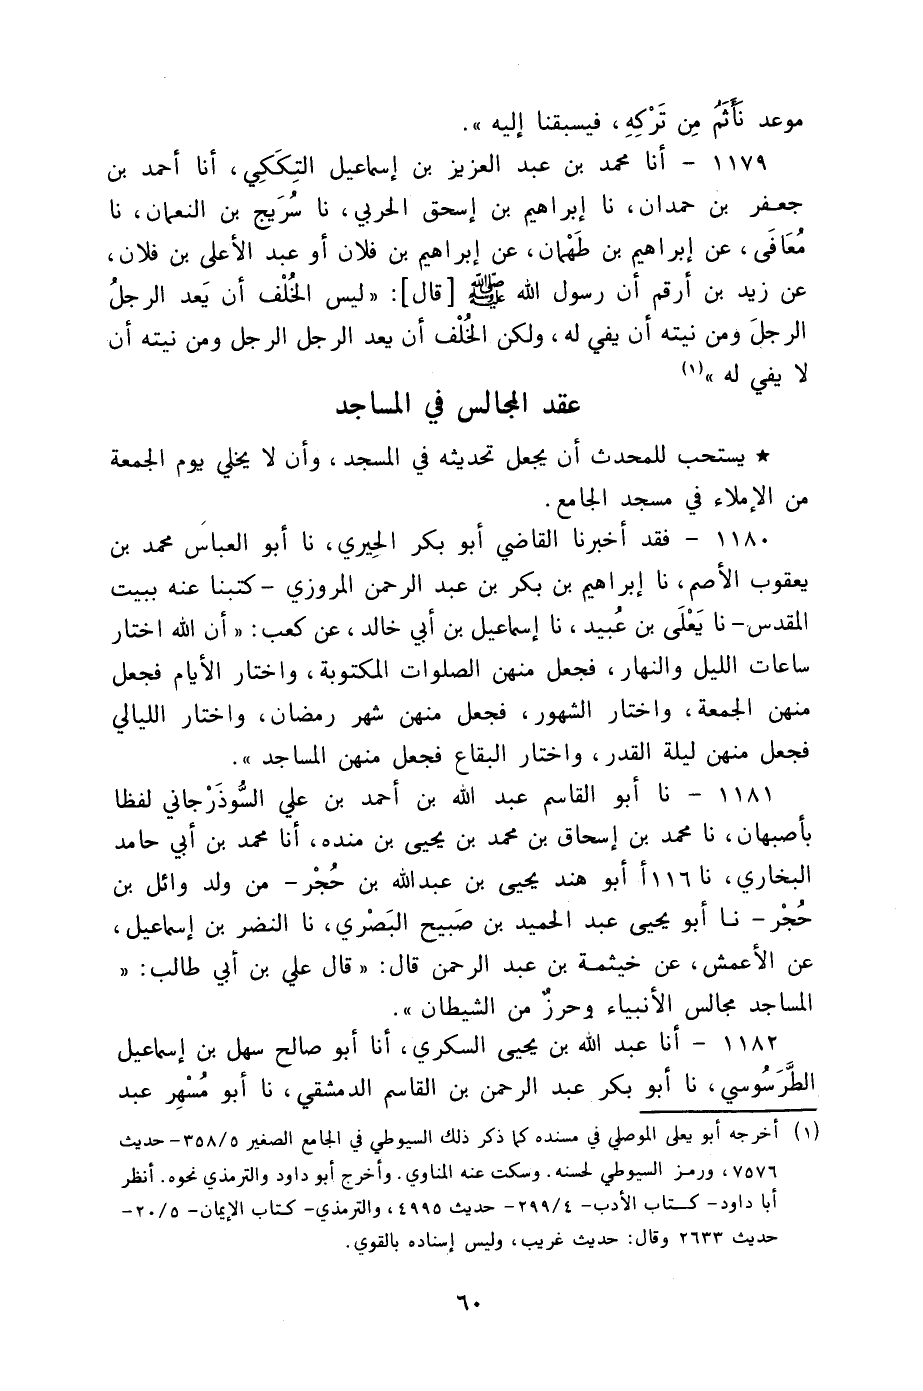 موعد نَأَثَمُ مِن تَرْكِهِ، فيسبقنا إليه ».
١١٧٩ - أنا محمد بن عبد العزيز بن إسماعيل التِكَكِي، أنا أحمد بن
جعفر بن حمدان، نا إبراهيم بن إسحق الحربي، نا سُرَيج بن النعمان، نا
مُعَافَى، عن إبراهيم بن طَهْمان، عن إبراهيم بن فلان أو عبد الأعلى بن فلان،
عن زيد بن أرقم أن رسول الله ﷺ [قال]: « ليس الخُلْف أن يَعد الرجلُ
الرجلَ ومن نيته أن يفي له، ولكن الخُلْف أن يعد الرجل الرجل ومن نيته أن
لا يفي له »(١)
عقد المجالس في المساجد
★ يستحب للمحدث أن يجعل تحديثه في المسجد، وأن لا يخلي يوم الجمعة
من الإملاء في مسجد الجامع.
١١٨٠ - فقد أخبرنا القاضي أبو بكر الحِيري، نا أبو العباس محمد بن
يعقوب الأصم، نا إبراهيم بن بكر بن عبد الرحمن المروزي -كتبنا عنه ببيت
المقدس- نا يَعْلَى بن عُبيد، نا إسماعيل بن أبي خالد، عن كعب: « أن الله اختار
ساعات الليل والنهار، فجعل منهن الصلوات المكتوبة، واختار الأيام فجعل
منهن الجمعة، واختار الشهور، فجعل منهن شهر رمضان، واختار الليالي
فجعل منهن ليلة القدر، واختار البقاع فجعل منهن المساجد ».
١١٨١ - نا أبو القاسم عبد الله بن أحمد بن علي السُّوذَرْجاني لفظا
بأصبهان، نا محمد بن إسحاق بن محمد بن يحيى بن منده، أنا محمد بن أبي حامد
البخاري، نا ١١٦أ أبو هند يحيى بن عبدالله بن حُجْر- من ولد وائل بن
حُجْر- نـا أبو يحيى عبد الحميد بن صَبيح البَصْري، نا النضر بن إسماعيل،
عن الأعمش، عن خيثمة بن عبد الرحمن قال: « قال علي بن أبي طالب: «
المساجد مجالس الأنبياء وحرزٌ من الشيطان ».
١١٨٢ - أنا عبد الله بن يحيى السكري، أنا أبو صالح سهل بن إسماعيل
الطَّرَسُوسي، نا أبو بكر عبد الرحمن بن القاسم الدمشقي، نا أبو مُسْهِر عبد
(١) أخرجه أبو يعلى الموصلي في مسنده كما ذكر ذلك السيوطي في الجامع الصغير ٣٥٨/٥-حديث
٧٥٧٦، ورمز السيوطي لحسنه. وسكت عنه المناوي. وأخرج أبو داود والترمذي نحوه. أنظر
أبا داود- كـتاب الأدب- ٢٩٩/٤- حديث ٤٩٩٥، والترمذي- كتاب الإيمان- ٢٠/٥-
حديث ٢٦٣٣ وقال: حديث غريب، وليس إسناده بالقوي.
٦٠